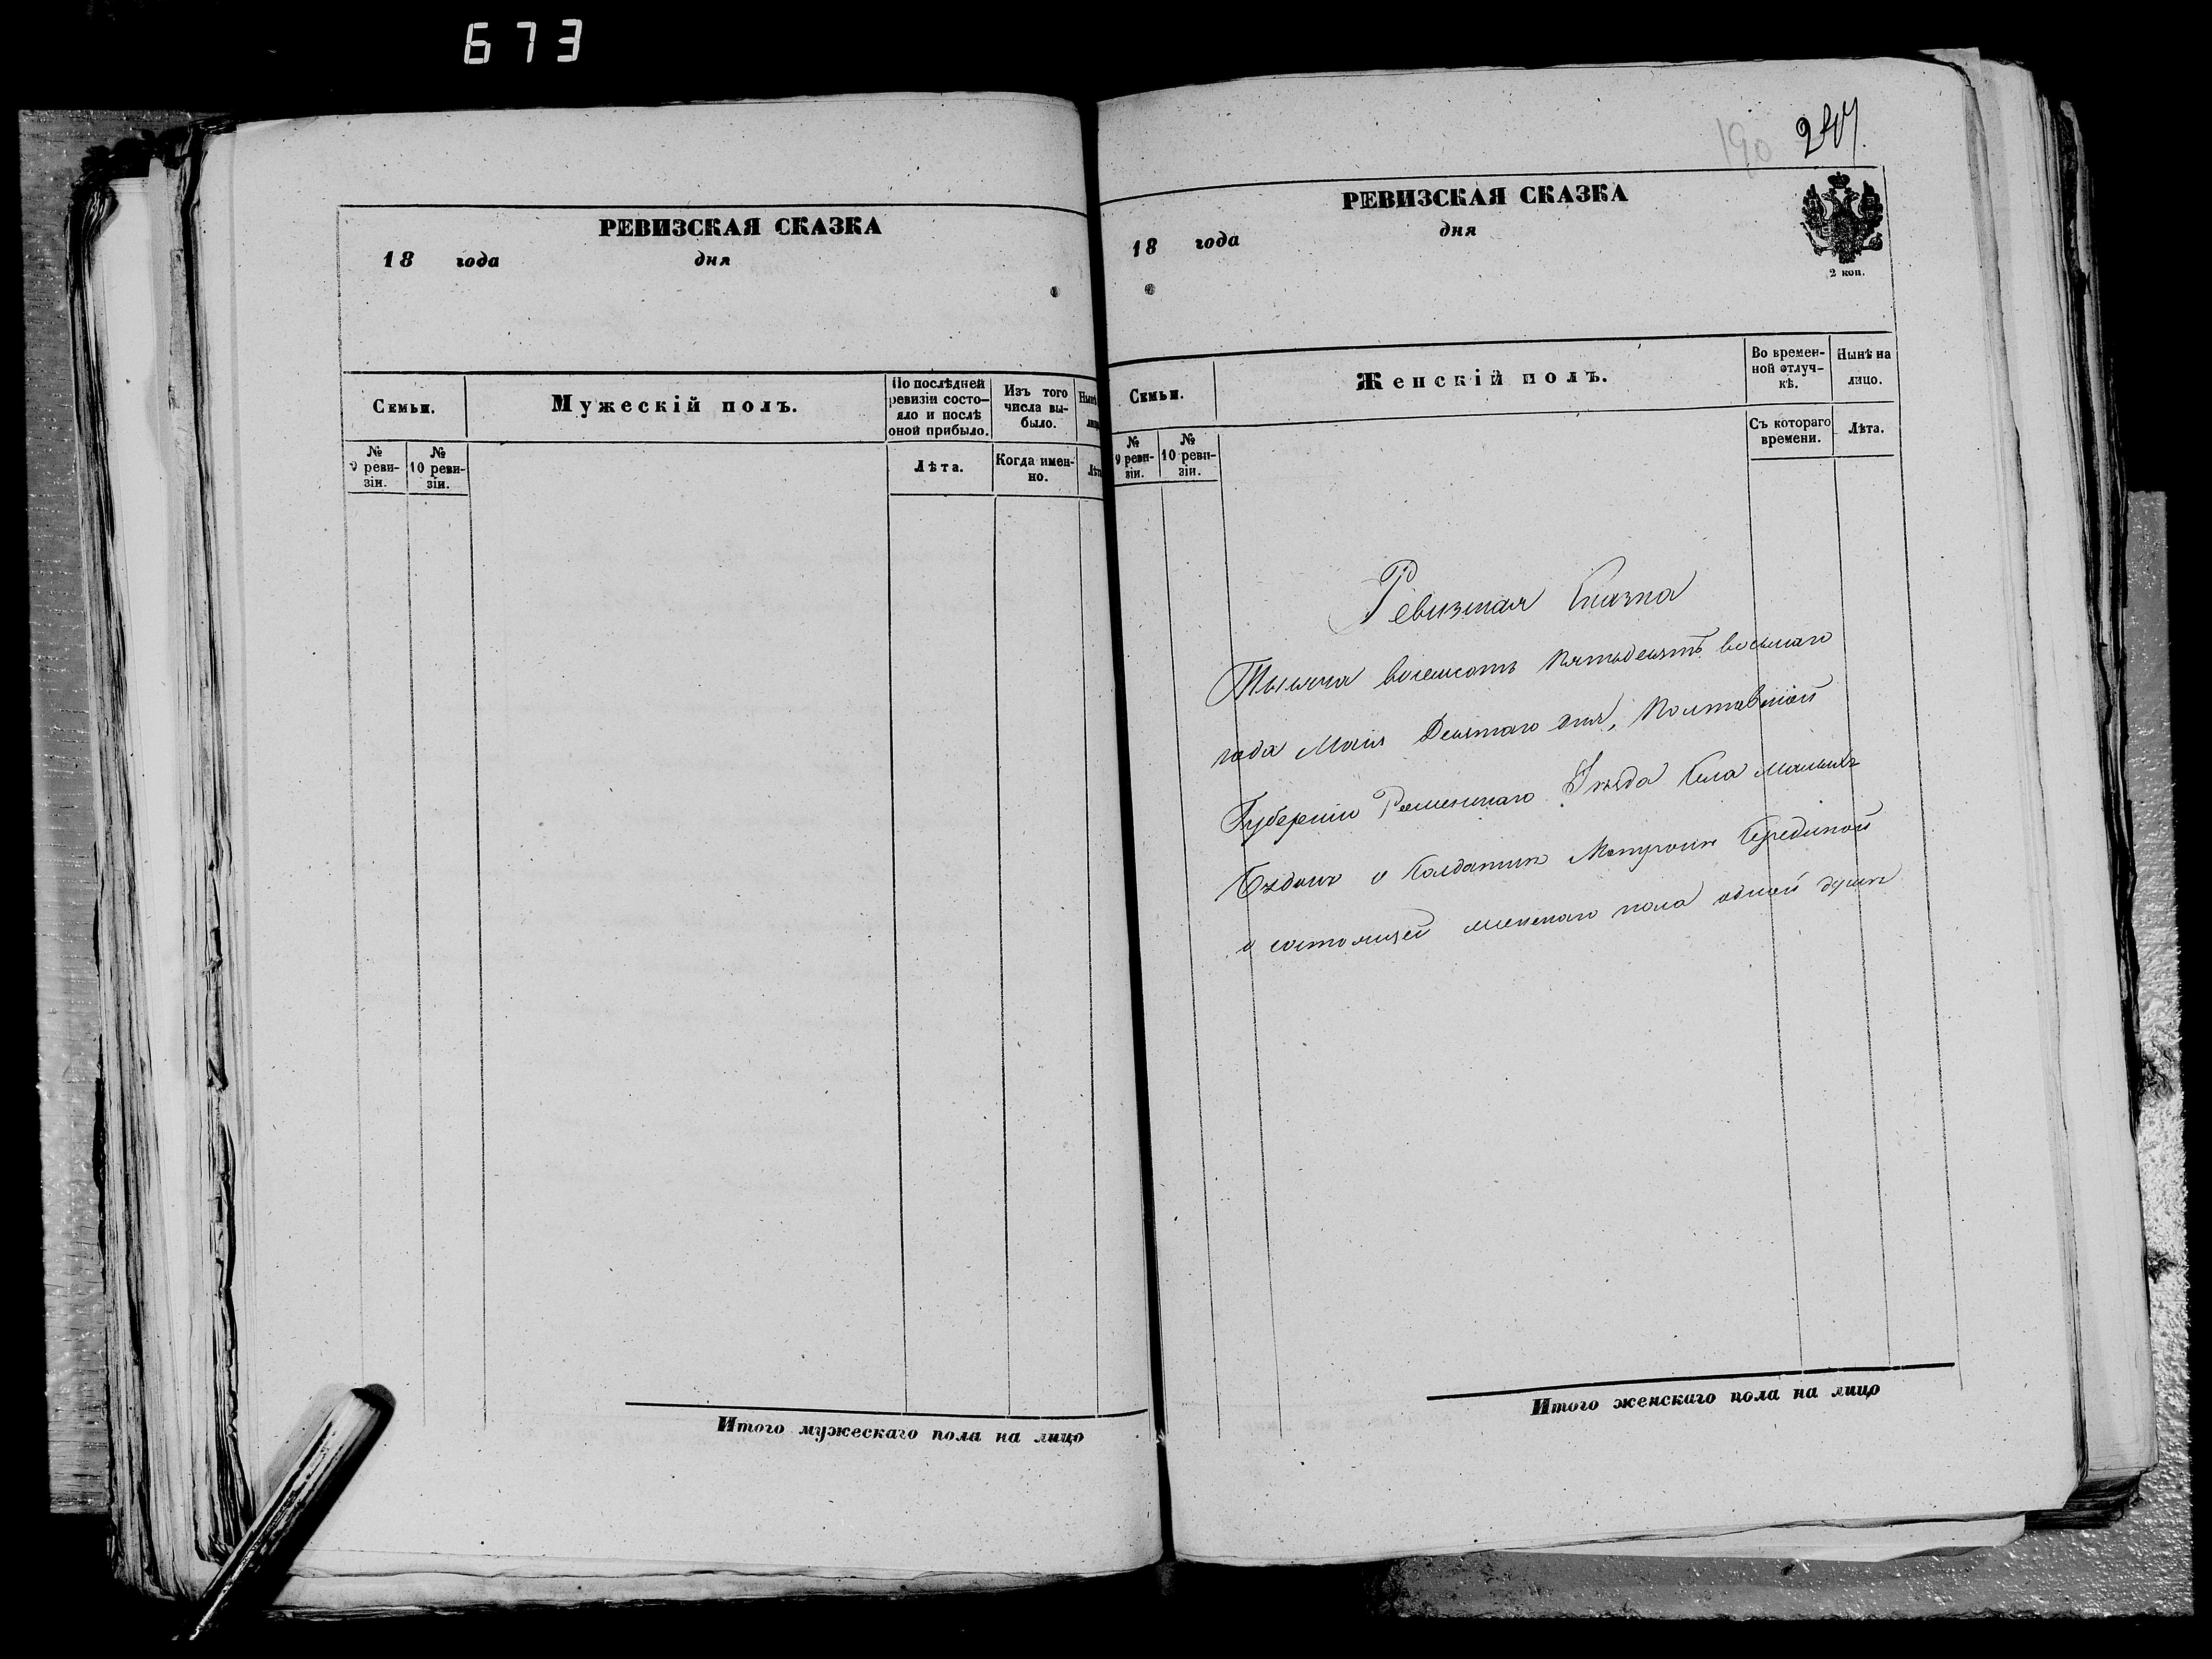 673
РЕВИЗСКАЯ СКАЗКА
18 года дня
Семьи.
Мужескій полъ.
По послѣдней ревизіи состояло и послѣ оной прибыло.
Изъ того числа выбыло.
Нынѣ
№ 9 ревизіи.
№ 10 ревизіи.
Лѣта.
Когда именно.
Лѣта
Итого мужескаго пола на лицо
190 247.
РЕВИЗСКАЯ СКАЗКА
18 года дня
2 коп.
Семьи.
Женскій полъ.
Во временной отлучкѣ.
Нынѣ на лицо.
№ 9 ревизіи.
№ 10 ревизіи.
Съ котораго времени.
Лѣта.
Ревизкая Сказка
Тысяча восемсотъ пятьдесятъ восьмаго
года Маія Десятаго дня, Полтавской
Губерніи Роменскаго Уѣзда Села Малыхъ
Бѣдокъ о Солдаткѣ Матронѣ Серединой
о состоящей женскаго пола одной душѣ
Итого женскаго пола на лицо